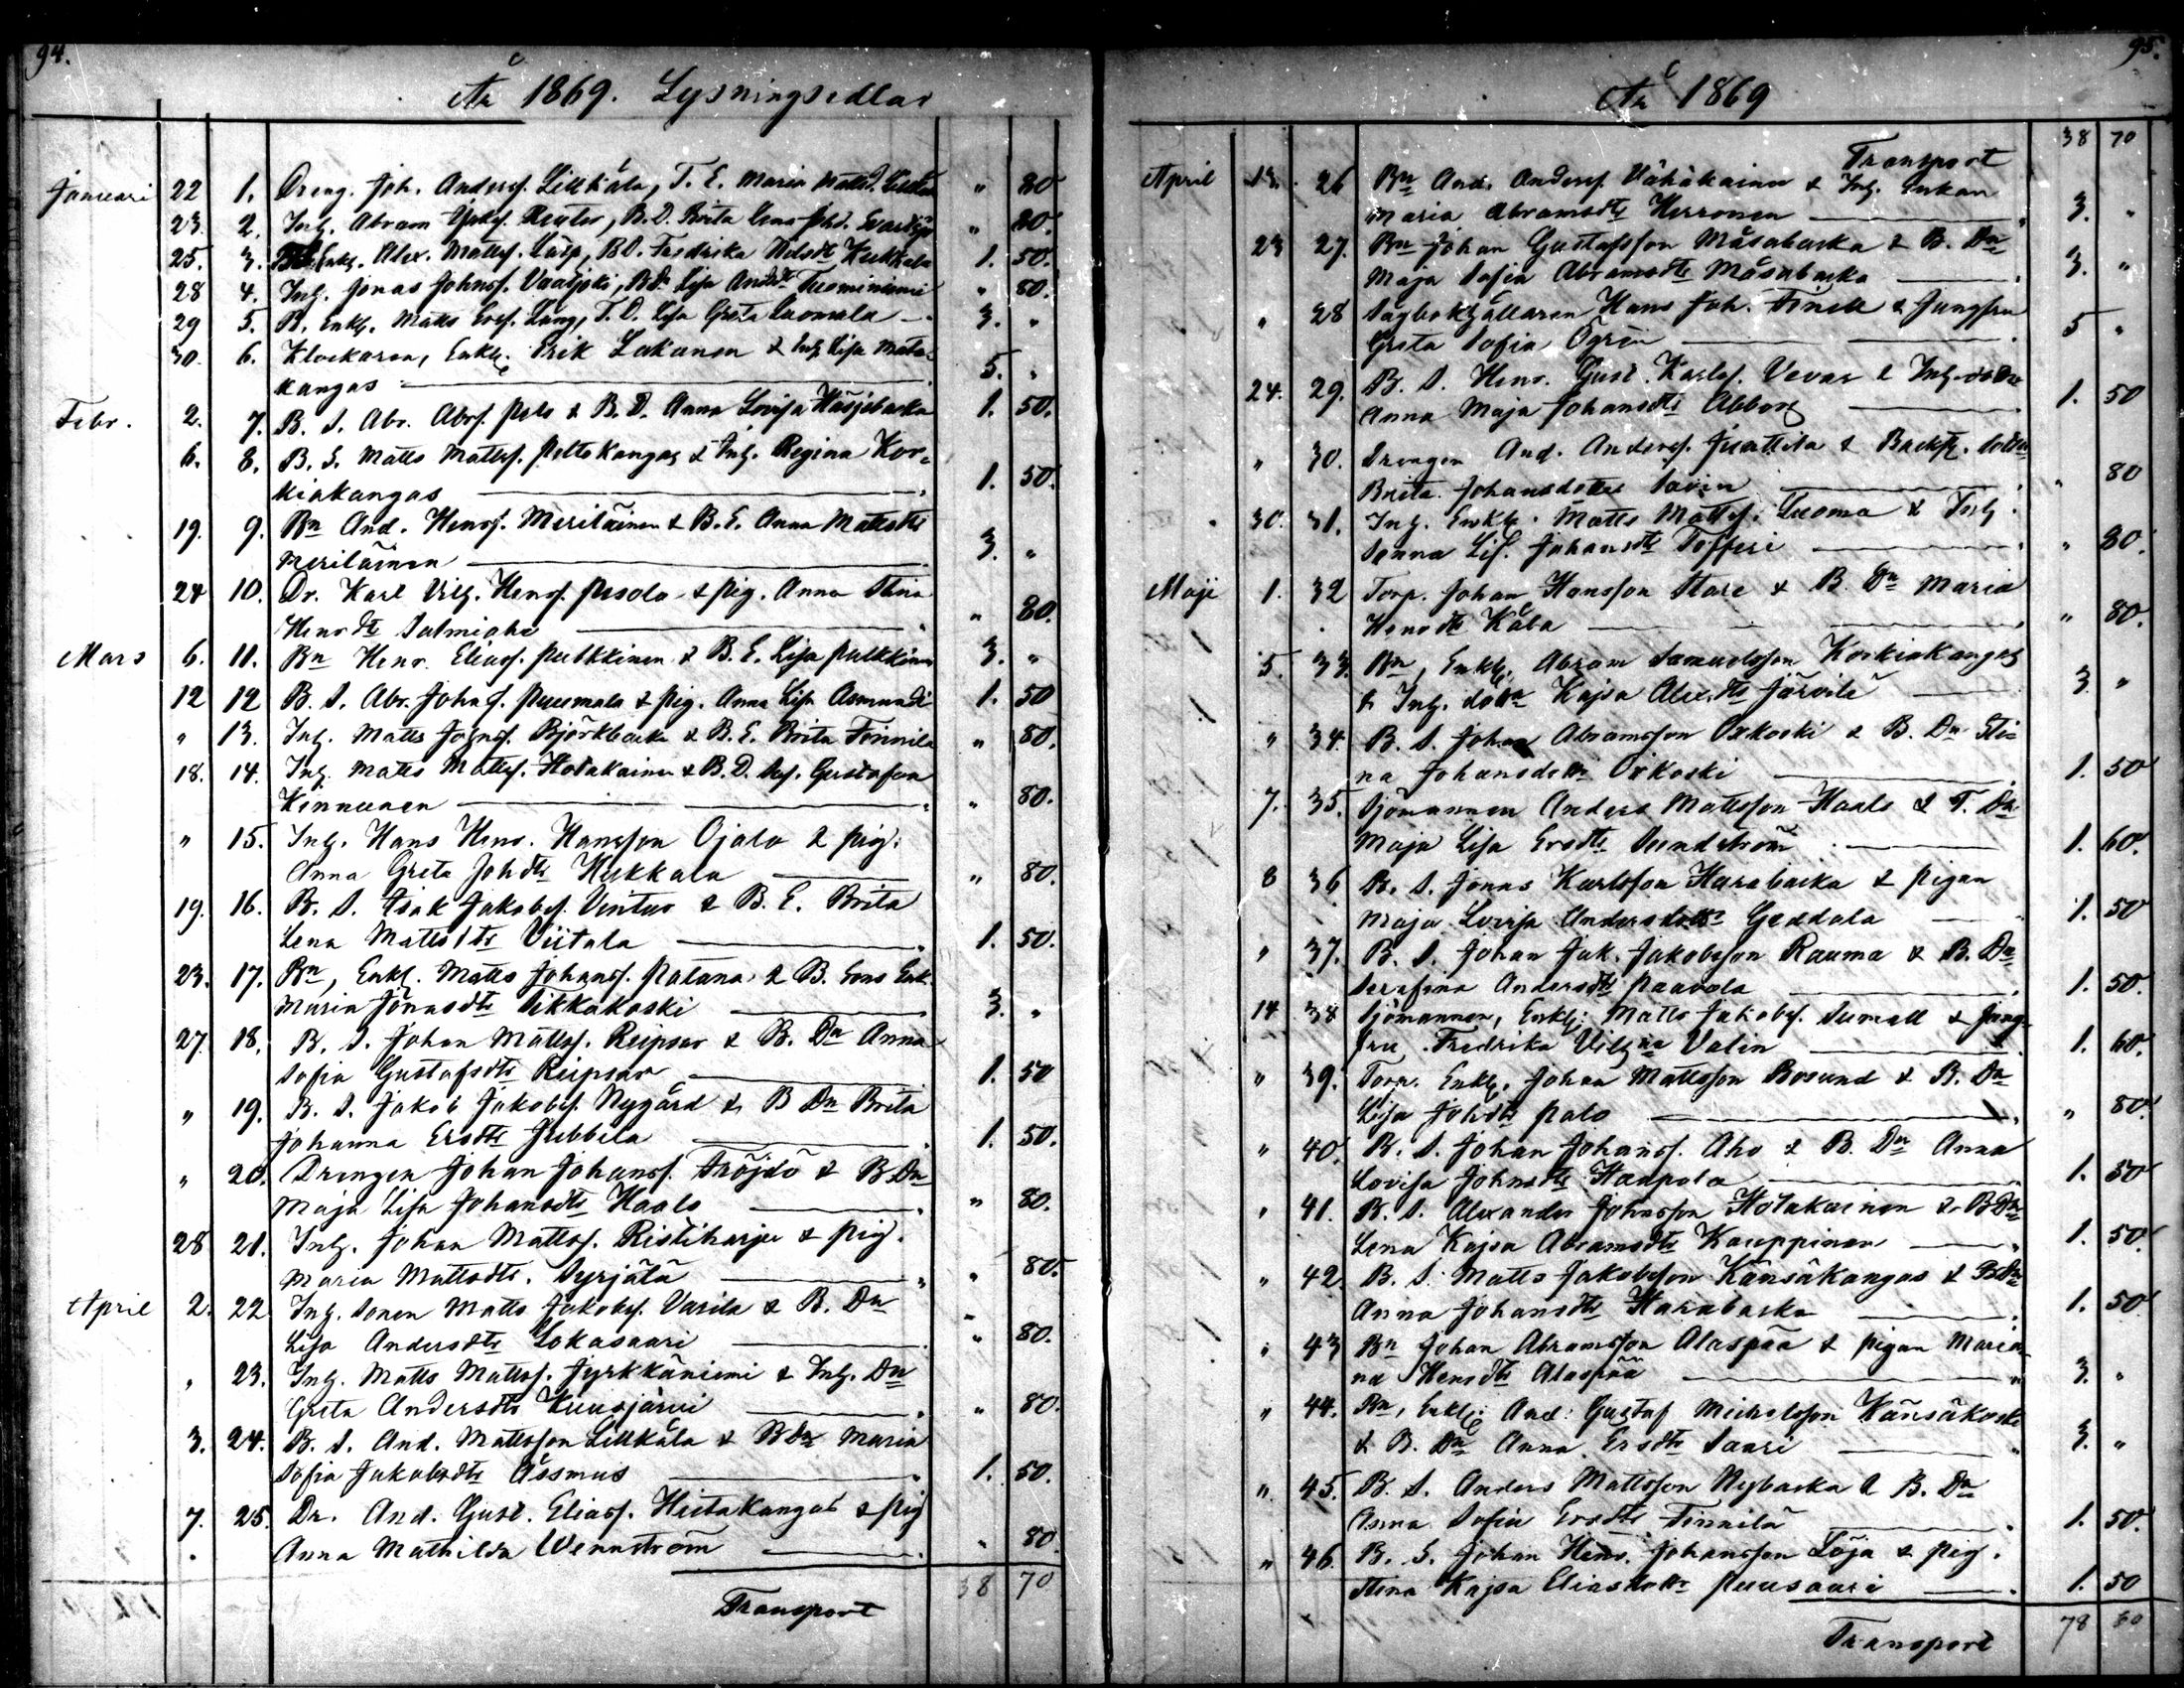 94.
År 1869. Lysningsedlar
Januari 22 1. Dreng. Joh. Anderss. Lillkåla, T. E. Maria Mattsd. " 80
23. 2. Inh. Abram Jakobss. Reuter, B. D. Brita " 80.
25. 3. Enkl. Alex. Mattss. Lasp, B.D. Fredrika Nilsdt Kukkola 1. 50.
28 4. Inh. Jonas Johnss. Vaatjoki, B.Dn Lisa Anddtr Tuominiemi " 80.
29 5. B. Enkl. Matts Ersss. Lång, T. D. Lisa Greta Luomala — 3. "
30. 6. Klockaren, Enkl. Erik Lakanen & Inh. Lisa Mata-
kangas — 5. "
Febr. 2. 7. B. S. Abr. Abrss. Palo & B. D. Anna Lovisa Häsjebacka 1. 50.
6. 8. B. S. Matts Mattss. Peltokangas & Inh. Regina Kor-
kiakangas — 1. 50.
19. 9. Bn And. Henrss. Meriläinen & B. E. Anna Mattsdtr
Meriläinen — 3. "
24 10. Dr. Karl Vilh. Henss. Pesola & pig. Anna Stina
Henrdtr Salmiaho — " 80.
Mars 6. 11. Bn Henr. Eliass. Pulkkinen & B. E. Lisa Pulkkinen 3. "
12 12 B. S. Abr. Johnss. Puumala & pig. Anna Lisa Asmundi 1. 50
" 13. Inh. Matts Johnss. Björkbacka & B. E. Brita Finnilä " 80.
18. 14. Inh. Matts Mattss. Hotakainen & B. D. Gustafva
Kinnunen — " 80.
" 15. Inh. Hans Henr. Hansson Ojala & pig.
Anna Greta Johdtr Kukkala — " 80.
19. 16. B. S. Isak Jakobss. Vintur & B. E. Brita
Lena Mattsdtr Viitala — 1. 50.
23. 17. Bn, Enkl. Matts Johanss. Patana & B. Sons Enk.
Maria Jonasdtr Sikkakoski — 3. "
27 18. B. S. Johan Mattss. Reipsar & B. Dn Anna
Sofia Gustafsdtr Reipsar — 1. 50
" 19. B. S. Jakob Jakobss. Nygård & B Dn Brita
Johanna Ersdtr Jubbila — 1. 50.
" 20. Drengen Johan Johanss. Fröjdö & B. Dn
Maja Lisa Johansdtr Haals — " 80.
28 21. Inh. Johan Mattss. Ristiharju & pig.
Maria Mattsdtr. Syrjälä — " 80.
April 2. 22 Inh. Sonen Matts Jakobss. Varila & B. Dn
Lisa Andersdtr Lokasaari — " 80.
" 23. Inh. Matts Mattss. Jyrkkäniemi & Inh. Dn
Greta Andersdtr Kuusjärvi — " 80.
3. 24. B. S. And. Mattsson Lillkåla & B Dn Maria
Sofia Jakobsdtr Åssmus — 1. 50.
7. 25. Dr. And. Gust. Eliass. Hietakangas & pig
Anna Mathilda Wennström — " 80.
Transport 38 70
95.
År 1869
Transport 38 70
April 13. 26 Bn And. Anderss. Vähäkainu & Inh. Enkan
Maria Abramsdtr Herronen — 3. "
23 27. Bn Johan Gustafsson Måsabacka & B. Dn
Maja Sofia Abramsdtr Måsabacka — 3. "
" 28 Dagbokhållaren Hans Joh. Finell & Jungfru
Greta Sofia Ögrén — 5 "
24. 29. B. S. Henr. Gust. Karlss. Vevar & Inh. dotn
Anna Maja Johansdtr Abborg — 1. 50
" 30. Drengen And. Anderss. Juottila & Backst. dottn
Brita Johansdotter Savin — " 80
30. 31. Inh. Enkl. Matts Mattss. Luoma & Inh.
Sanna Lis. Johansdtr Tofferi — " 80.
Maji 1. 32 Torp. Johan Hansson Stare & B. Dn Maria
Henrdtr Kåla — " 80.
5. 33. Bn, Enkl. Abram Samuelsson Korkiakangas
& Inh. dotn Kajsa Alex.dtr Järvilä — 3. "
" 34. B. S. Johan Abramsson Oxkoski & B. Dn Sti-
na Johansdottr Oxkoski — 1. 50
7. 35. Sjömannen Anders Mattsson Haals & T. Dn
Maja Lisa Ersdtr Sundström — 1. 60.
8 36 B. S. Jonas Karlsson Harabacka & pigan
Maja Lovisa Andersdottr Gäddala — 1. 50
" 37. B. S. Johan Jak. Jakobsson Rauma & B. Dn
Serafina Andersdtr Paavola — 1. 50.
14 38 Sjömannen, Enkl. Matts Jakobss. Sumell & Jung-
fru Fredrika Vilhna Valin — 1. 60.
" 39. Torp. Enkl. Johan Mattsson Bosund & B. Dn
Lisa Johdtr Palo — " 80.
" 40. B. S. Johan Johanss. Aho & B. Dn Anna
Lovisa Johnsdtr Haapola — 1. 50
" 41. B. S. Alexander Johnsson Hotakainen & B Dn
Lena Kajsa Abramsdtr Kauppinen — 1. 50.
" 42. B. S. Matts Jakobsson Känsäkangas & B Dn
Anna Johansdtr Harabacka — 1. 50.
" 43 Bn Johan Abramsson Alaspää & pigan Maria-
na Henrdtr Alaspää — 3. "
" 44. Bn, Enkl. And. Gustaf Michelsson Känsäkoski
& B. Dn Anna Ersdtr Saari — 3. "
" 45. B. S. Anders Mattsson Nybacka & B. Dn
Anna Sofia Ersdtr Finnilä — 1. 50.
" 46. B. S. Johan Henr. Johansson Löja & pig.
Stina Kajsa Eliasdottr Puusaari — 1. 50
Transport 78 60